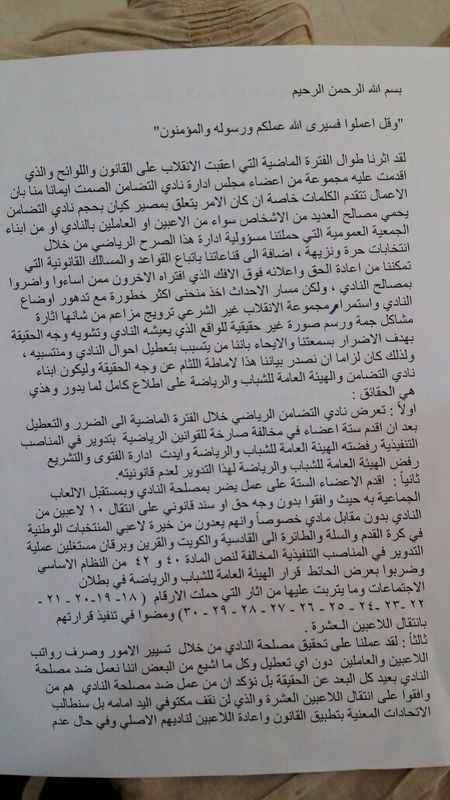 بسم الله الرحمن الرحيم
"وقل اعملوا فسيرى الله عملكم ورسوله والمؤمنون"
لقد اثرنا طوال الفترة الماضية التي اعقبت الانقلاب على القانون واللوائح والذي
اقدمت عليه مجموعة من اعضاء مجلس ادارة نادي التضامن الصمت ايمانا منا بان
الاعمال تتقدم الكلمات خاصة ان كان الامر يتعلق بمصير كيان بحجم نادي التضامن
يحمي مصالح العديد من الاشخاص سواء من الاعبين او العاملين بالنادي او من ابناء
الجمعية العمومية التي حملتنا مسؤولية ادارة هذا الصرح الرياضي من خلال
انتخابات حرة ونزيهة ، اضافة الى قناعاتنا باتباع القواعد والمسالك القانونية التي
تمكننا من اعادة الحق واعلائه فوق الافك الذي افتراه الاخرون ممن اساءوا واضروا
بمصالح النادي ، ولكن مسار الاحداث اخذ منحنى اكثر خطورة مع تدهور اوضاع
النادي واستمرار مجموعة الانقلاب غير الشرعي ترويج مزاعم من شانها اثارة
مشاكل جمة ورسم صورة غير حقيقية للواقع الذي يعيشه النادي وتشويه وجه الحقيقة
بهدف الاضرار بسمعتنا والايحاء باننا من يتسبب بتعطيل احوال النادي ومنتسبيه ،
ولذلك كان لزاما ان نصدر بياننا هذا لاماطة اللثام عن وجه الحقيقة وليكون ابناء
نادي التضامن والهيئة العامة للشباب والرياضة على اطلاع كامل لما يدور وهذي
هي الحقائق :
اولاً : تعرض نادي التضامن الرياضي خلال الفترة الماضية الى الضرر والتعطيل
بعد ان اقدم ستة اعضاء في مخالفة صارخة للقوانين الرياضية بتدوير في المناصب
التنفيذية رفضته الهيئة العامة للشباب والرياضة وايدت ادارة الفتوى والتشريع
رفض الهيئة العامة للشباب والرياضة لهذا التدوير لعدم قانونيته.
ثانياً : اقدم الاعضاء الستة على عمل يضر بمصلحة النادي وبمستقبل الالعاب
الجماعية به حيث وافقوا بدون وجه حق او سند قانوني على انتقال ١٠ لاعبين من
النادي بدون مقابل مادي خصوصاً وانهم يعدون من خيرة لاعبي المنتخبات الوطنية
في كرة القدم والسلة والطائرة الى القادسية والكويت والقرين وبرقان مستغلين عملية
التدوير في المناصب التنفيذية المخالفة لنص المادة ٤٠ و ٤٢ من النظام الاساسي
وضربوا بعرض الحائط قرار الهيئة العامة للشباب والرياضة في بطلان
الاجتماعات وما يترتب عليها من اثار التي حملت الارقام ( ١٨- ١٩-٢٠ - ٢١ -
٢٢ -٢٣ -٢٤ - ٢٥ - ٢٦ - ٢٧ - ٢٨ - ٢٩ - ٣٠) ومضوا في تنفيذ قرارتهم
بانتقال اللاعبين العشرة .
ثالثاً : لقد عملنا على تحقيق مصلحة النادي من خلال تسيير الامور وصرف رواتب
اللاعبين والعاملين دون اي تعطيل وكل ما اشيع من البعض اننا نعمل ضد مصلحة
النادي بعيد كل البعد عن الحقيقة بل نؤكد ان من عمل ضد مصلحة النادي هم من
وافقوا على انتقال اللاعبين العشرة والذي لن نقف مكتوفي اليد امامه بل سنطالب
الاتحادات المعنية بتطبيق القانون واعادة اللاعبين لناديهم الاصلي وفي حال عدم